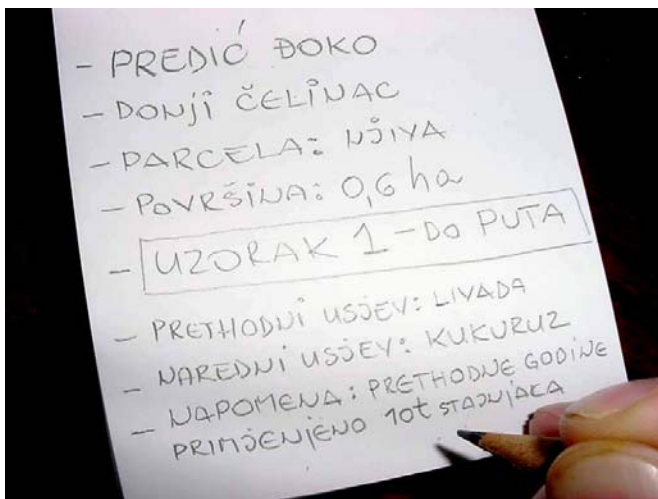 - PREDIĆ ĐOKO
- DONJI ČELINAC
- PARCELA: NJIVA
- POVRŠINA: 0,6 ha
- UZORAK 1 - DO PUTA
- PRETHODNI USJEV: LIVADA
- NAREDNI USJEV: KUKURUZ
- NAPOMENA: PRETHODNE GODINE
PRIMJENJENO 10t STAJNJAKA